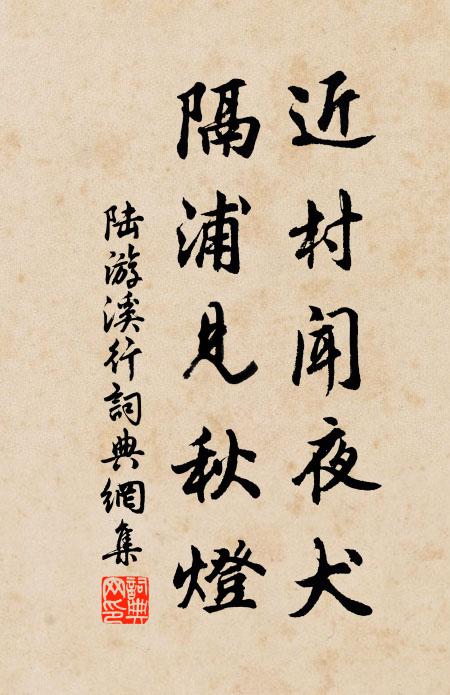 近村闻夜犬
隔浦見秋燈
陆游溪行詞典網集
詞典网印